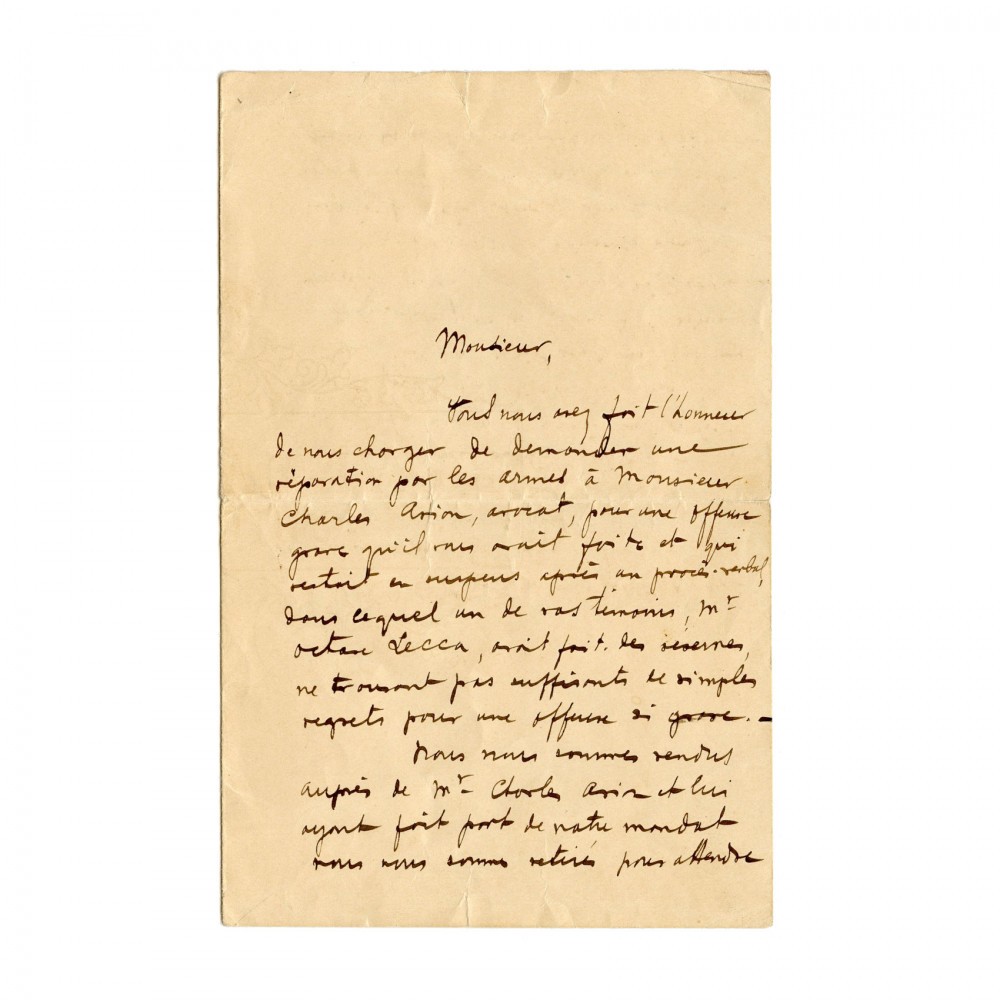 Monsieur,
Vous nous avez fait l'honneur
de nous charger de demander une
réparation par les armes à Monsieur
Charles Arion, avocat, pour une offense
grave qu'il vous avait faite et qui
restait en suspens après un procès-verbal,
dans lequel un de vos témoins, Mr
Octave Lecca, avait fait des réserves,
ne trouvant pas suffisants de simples
regrets pour une offense si grave. —
Nous nous sommes rendus
auprès de Mr Charles Arion et lui
ayant fait part de notre mandat
nous nous sommes retirés pour attendre